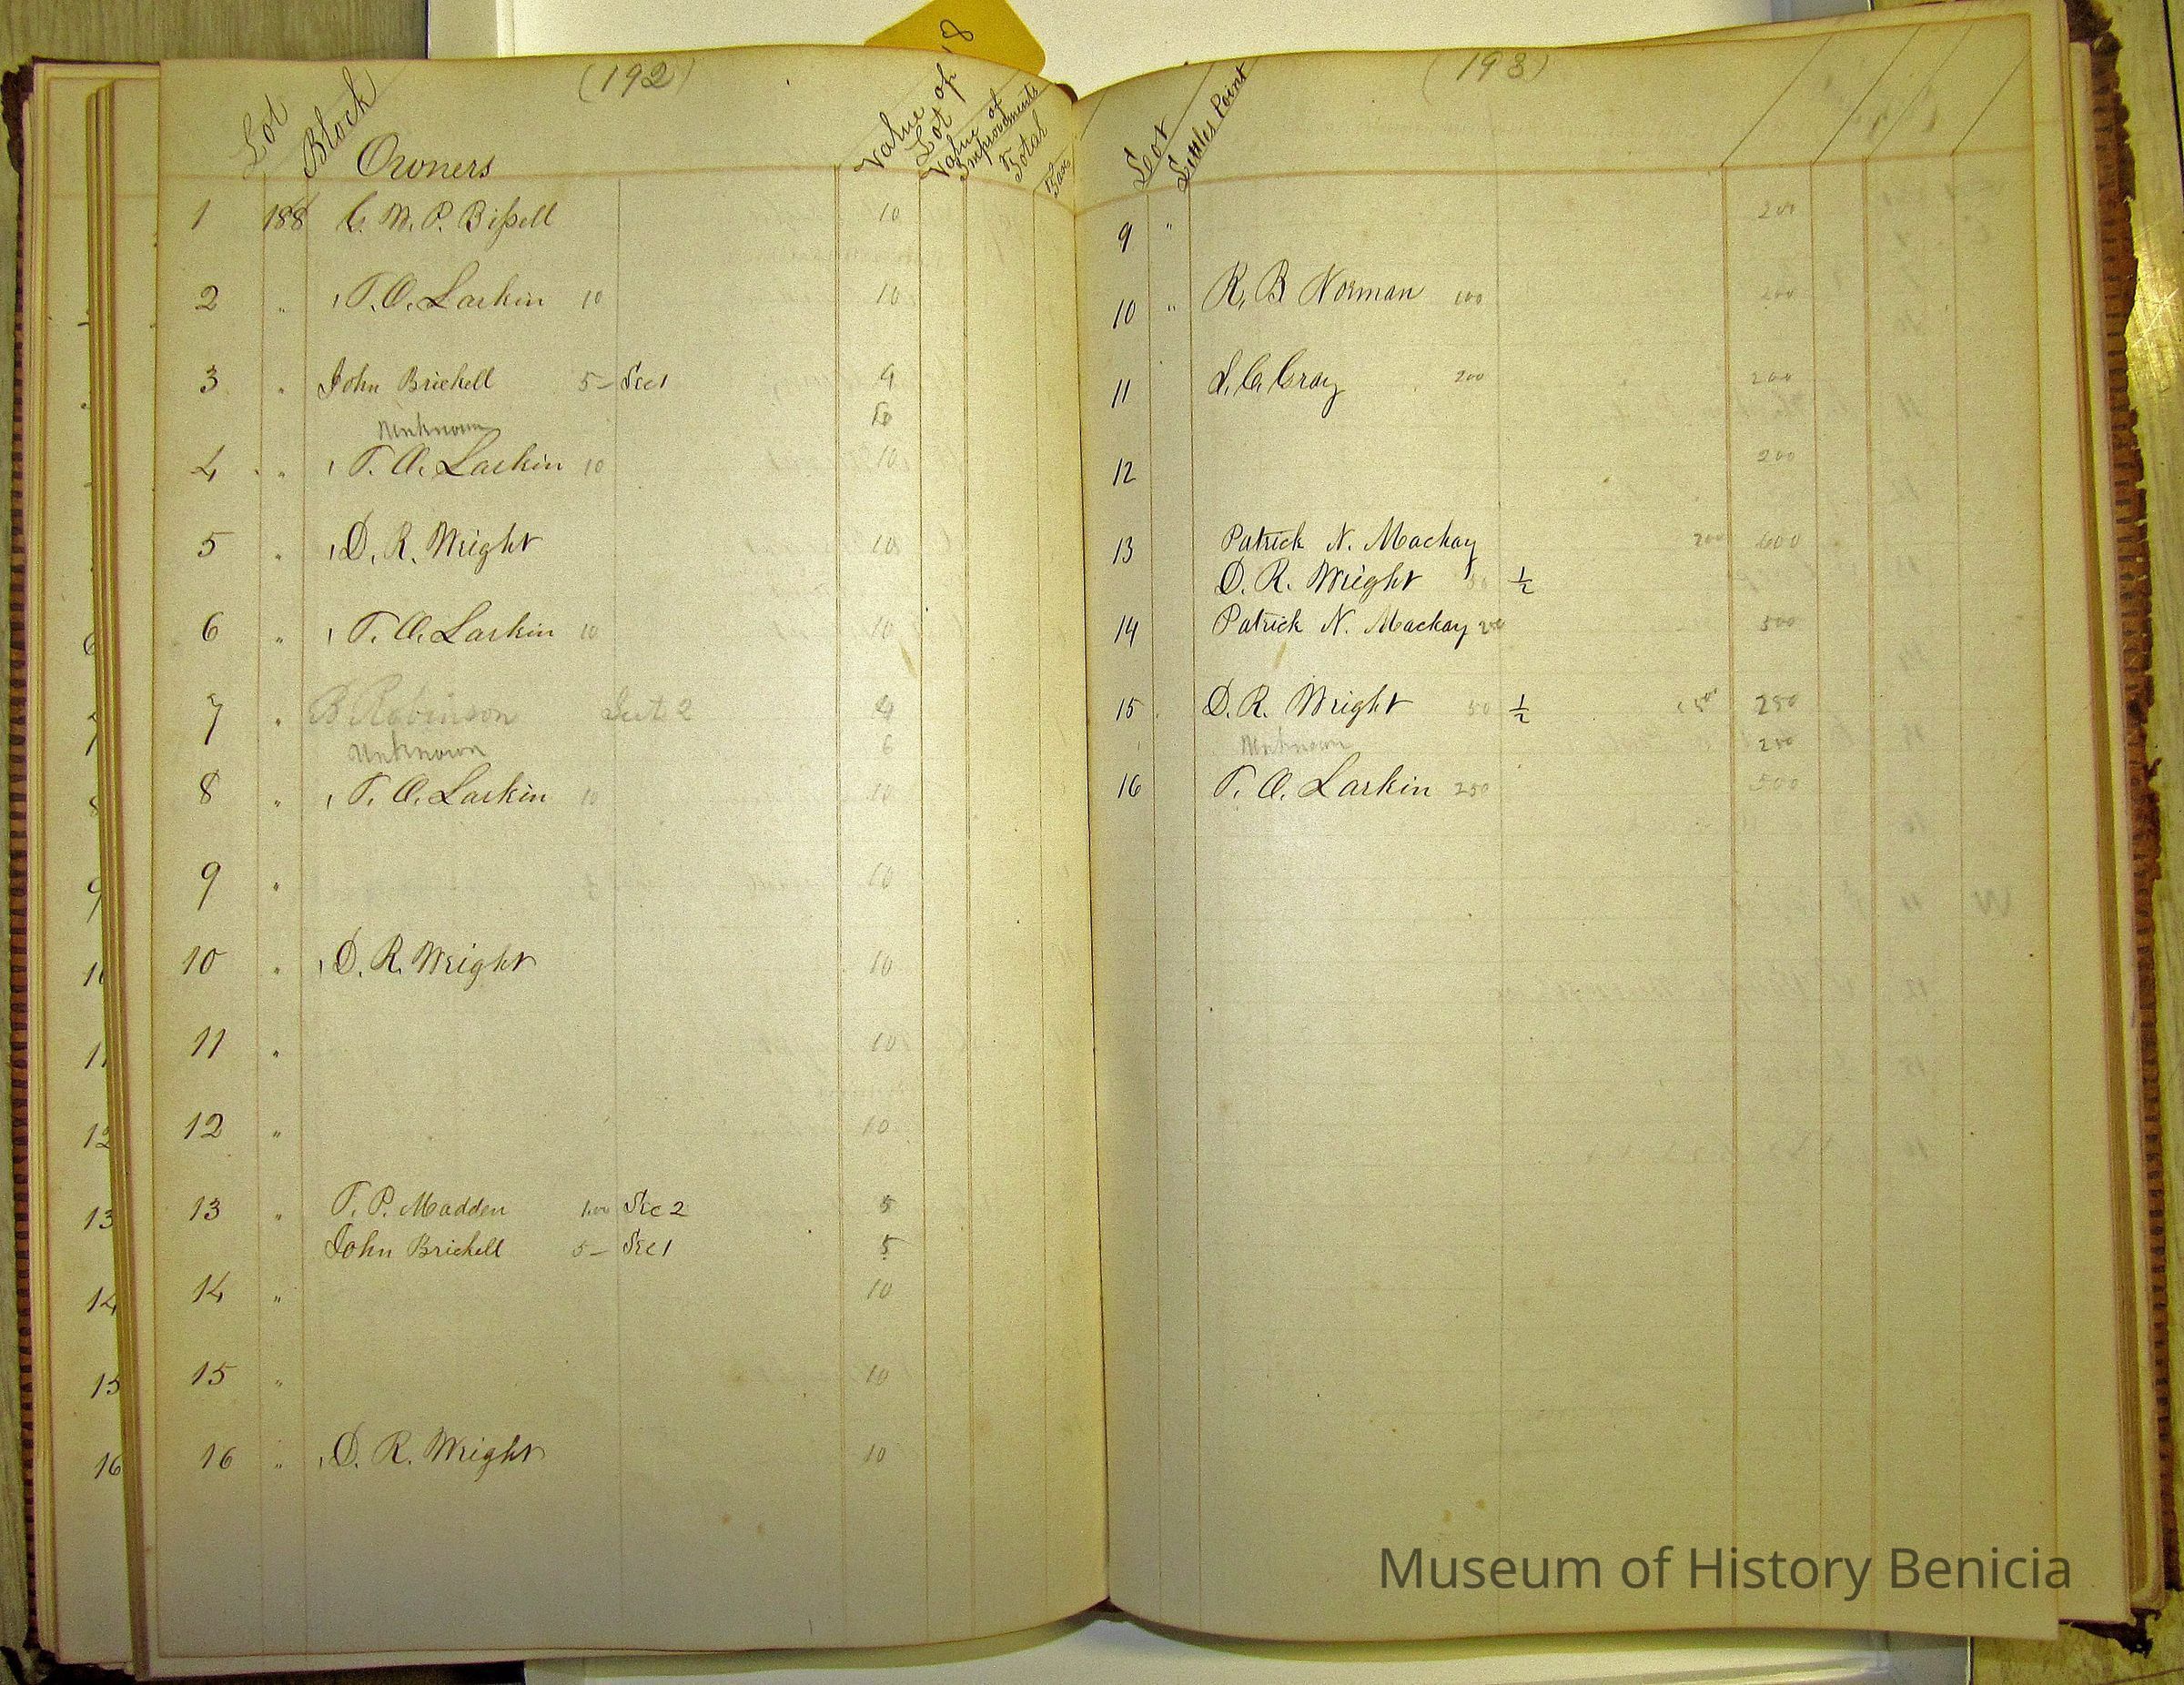 8
(192)
Lot Block Owners Value of Lot Value of Improvements Total Tax
1 188 C. M. P. Bißell 10
2 " T. O. Larkin 10 10
3 " John Brickell 5– Sec 1
Unknown
4 " T. O. Larkin 10 10
5 " D. R. Wright 10
6 " T. O. Larkin 10 10
7 " B Robinson Sect 2 4
Unknown 6
8 " T. O. Larkin 10 10
9 " 10
10 " D. R. Wright 10
11 " 10
12 " 10
13 " T. P. Madden Sec 2 5
John Brickell 5– Sec 1 5
14 " 10
15 " 10
16 " D. R. Wright 10
(193)
Lot Suttles Point
9 " 200
10 " R. B Norman 100 200
11 S. C. Gray 200 200
12 200
13 Patrick N. Mackay 200
D. R. Wright 50 ½
14 Patrick N. Mackay 200 500
15 D. R. Wright 50 ½ 250
Unknown 200
16 T. O. Larkin 250 500
6
7
8
9
10
11
12
13
14
15
16
Museum of History Benicia